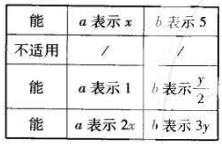 能 a表示x b表示5
不适用 / /
能 a表示1 b表示y/2
能 a表示2x b表示3y